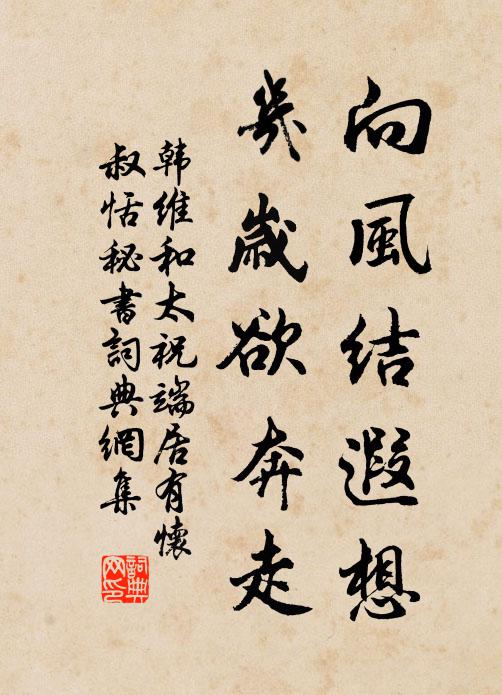 向風結遐想
幾歲欲奔走
韩維和太祝端居有懷
叔恬秘書詞典網集
詞典網印